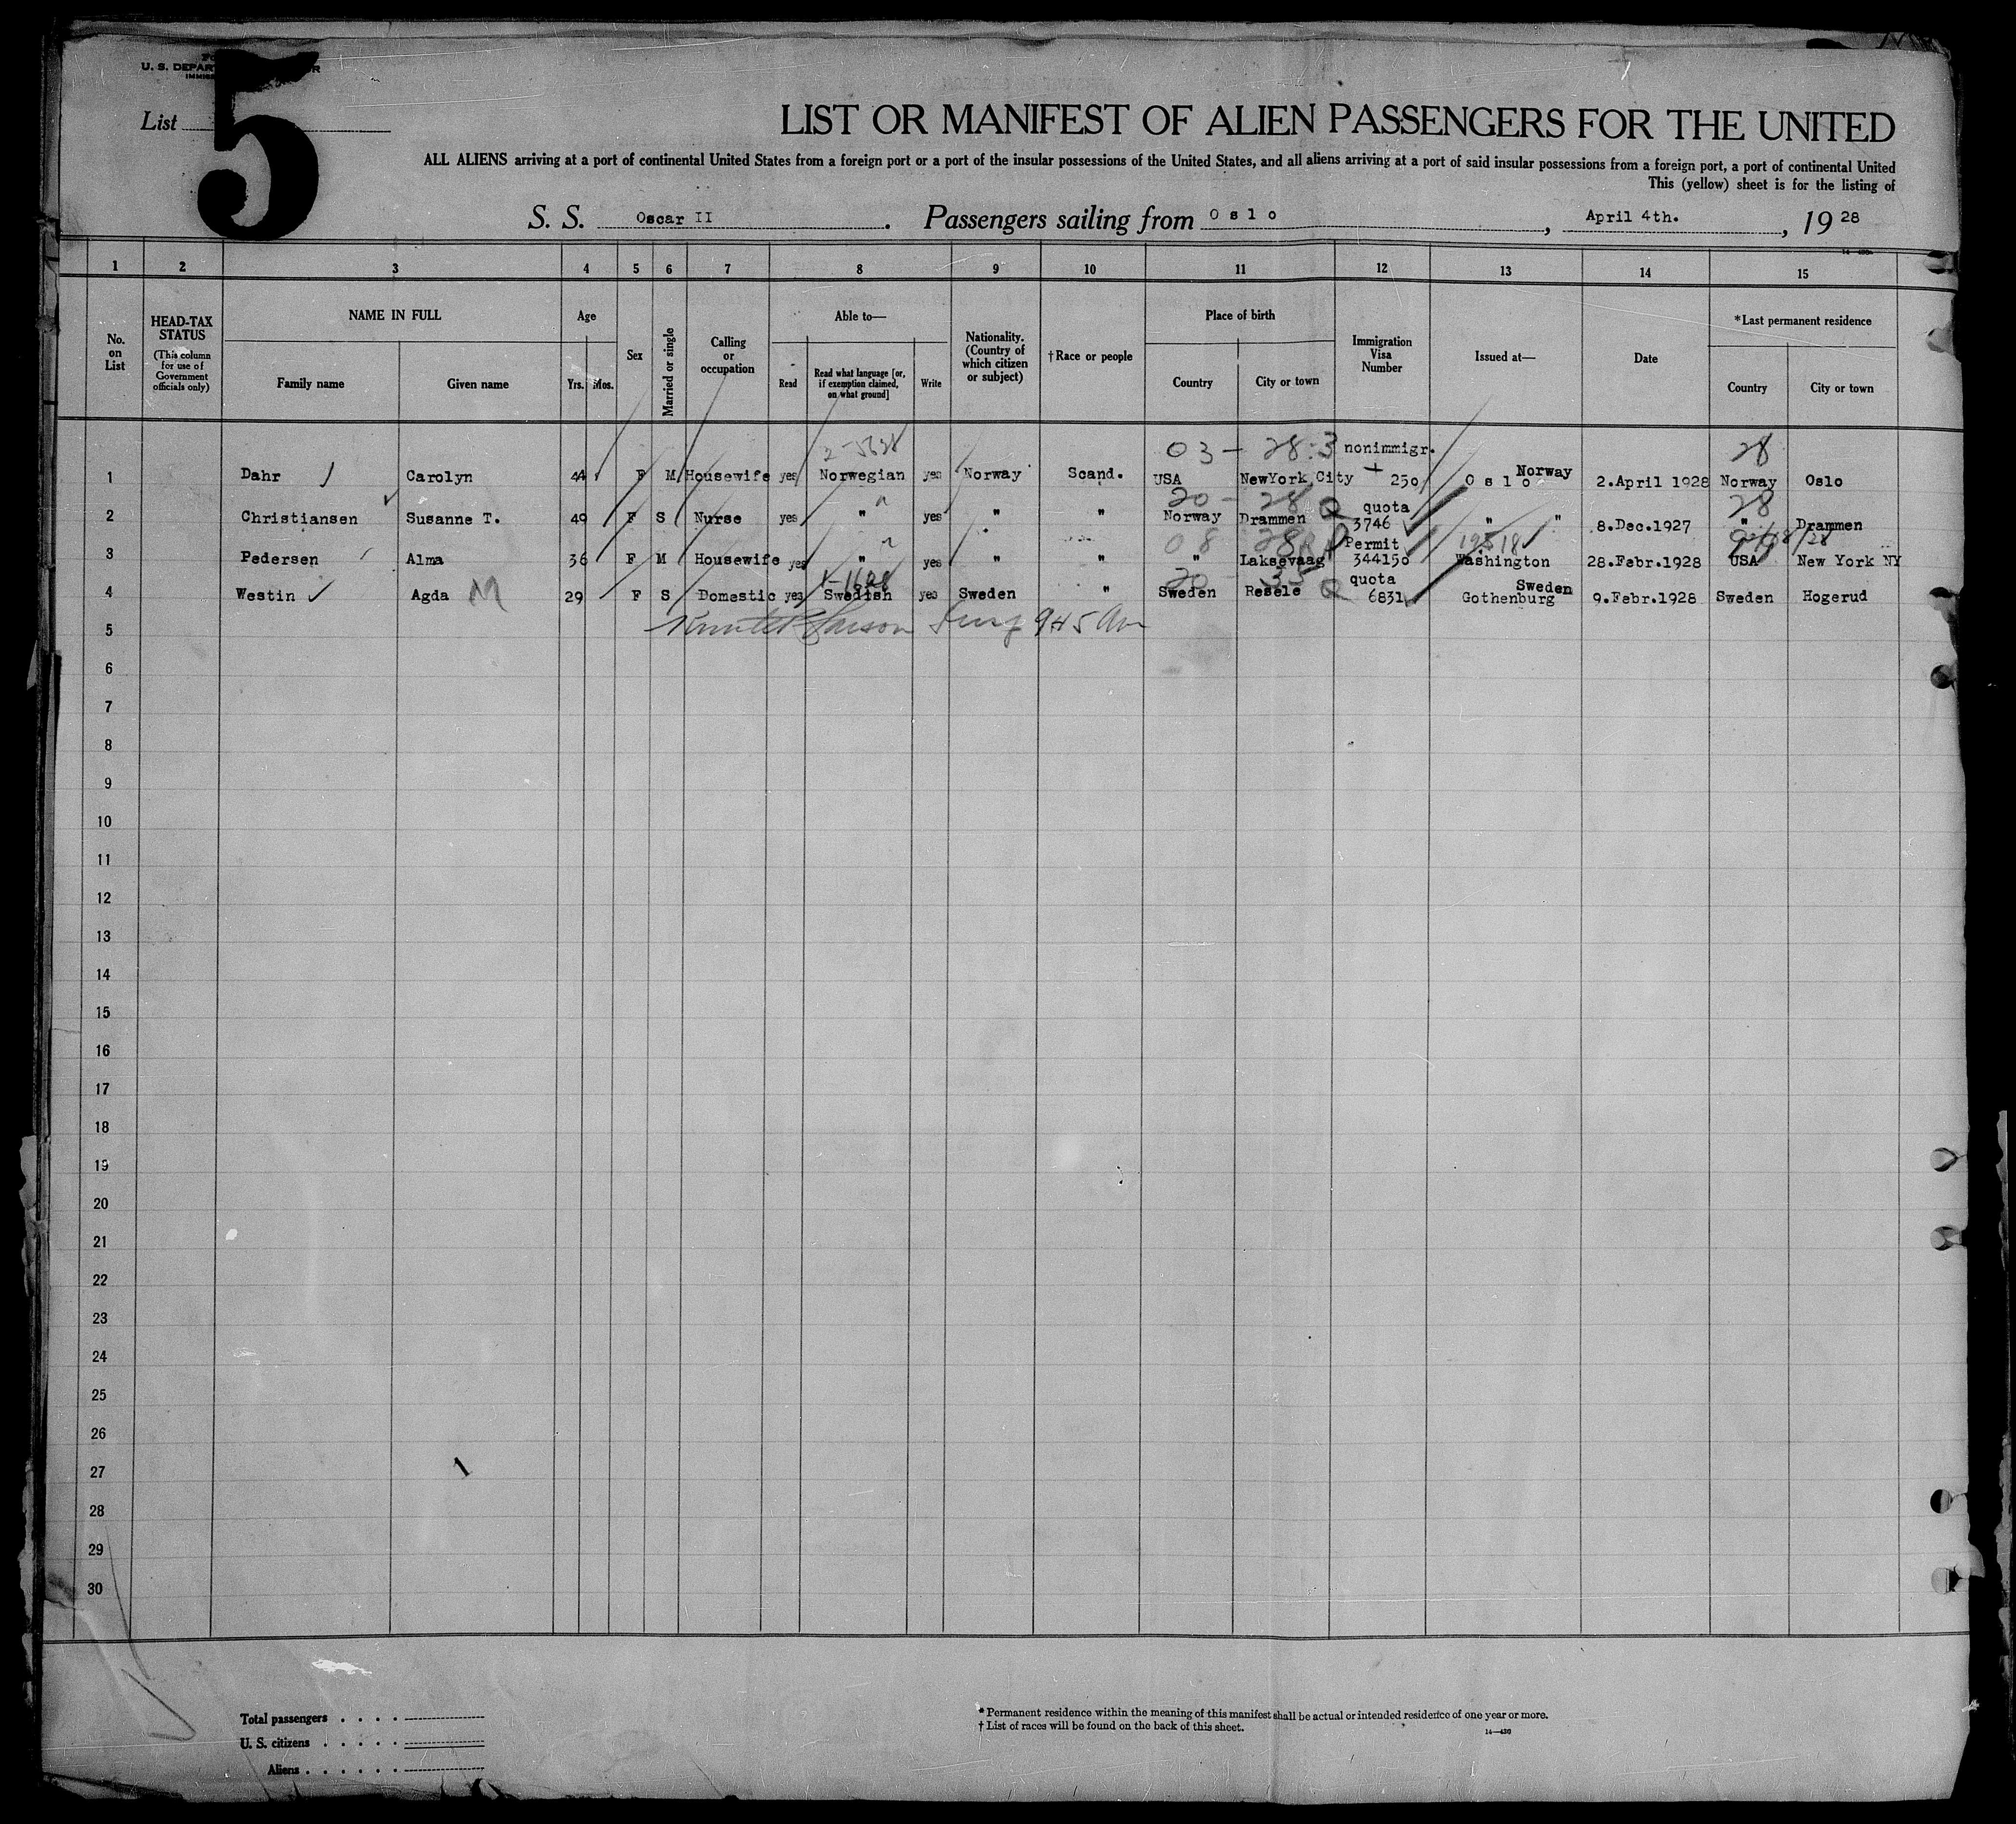 U. S. DEPAR
5
List
LIST OR MANIFEST OF ALIEN PASSENGERS FOR THE UNITED
ALL ALIENS arriving at a port of continental United States from a foreign port or a port of the insular possessions of the United States, and all aliens arriving at a port of said insular possessions from a foreign port, a port of continental United
This (yellow) sheet is for the listing of
S. S. Oscar II. Passengers sailing from Oslo, April 4th., 1928
1 2 3 4 5 6 7 8 9 10 11 12 13 14 15
No. on List
HEAD-TAX STATUS (This column for use of Government officials only)
NAME IN FULL
Family name Given name
Age
Yrs. Mos.
Sex
Married or single
Calling or occupation
Able to—
Read Read what language [or, if exemption claimed, on what ground] Write
Nationality. (Country of which citizen or subject)
†Race or people
Place of birth
Country City or town
Immigration Visa Number
Issued at—
Date
*Last permanent residence
Country City or town
03 - 28:3 nonimmigr. 28
1 Dahr Carolyn 44 F M Housewife yes Norwegian yes Norway Scand. USA NewYork City 250 Oslo Norway 2.April 1928 Norway Oslo
20 - 28 Q quota 28
2 Christiansen Susanne T. 49 F S Nurse yes " yes " " Norway Drammen 3746 " " 8.Dec.1927 " Drammen
08 28 Permit
3 Pedersen Alma 36 F M Housewife yes " yes " " " Laksevaag 344150 Washington 28.Febr.1928 USA New York NY
20 - 35 Q quota Sweden
4 Westin Agda M 29 F S Domestic yes Swedish yes Sweden " Sweden Resele 6831 Gothenburg 9.Febr.1928 Sweden Hogerud
5 945 Am
6
7
8
9
10
11
12
13
14
15
16
17
18
19
20
21
22
23
24
25
26
27
28
29
30
Total passengers
U. S. citizens
Aliens
*Permanent residence within the meaning of this manifest shall be actual or intended residence of one year or more.
†List of races will be found on the back of this sheet.
14—430